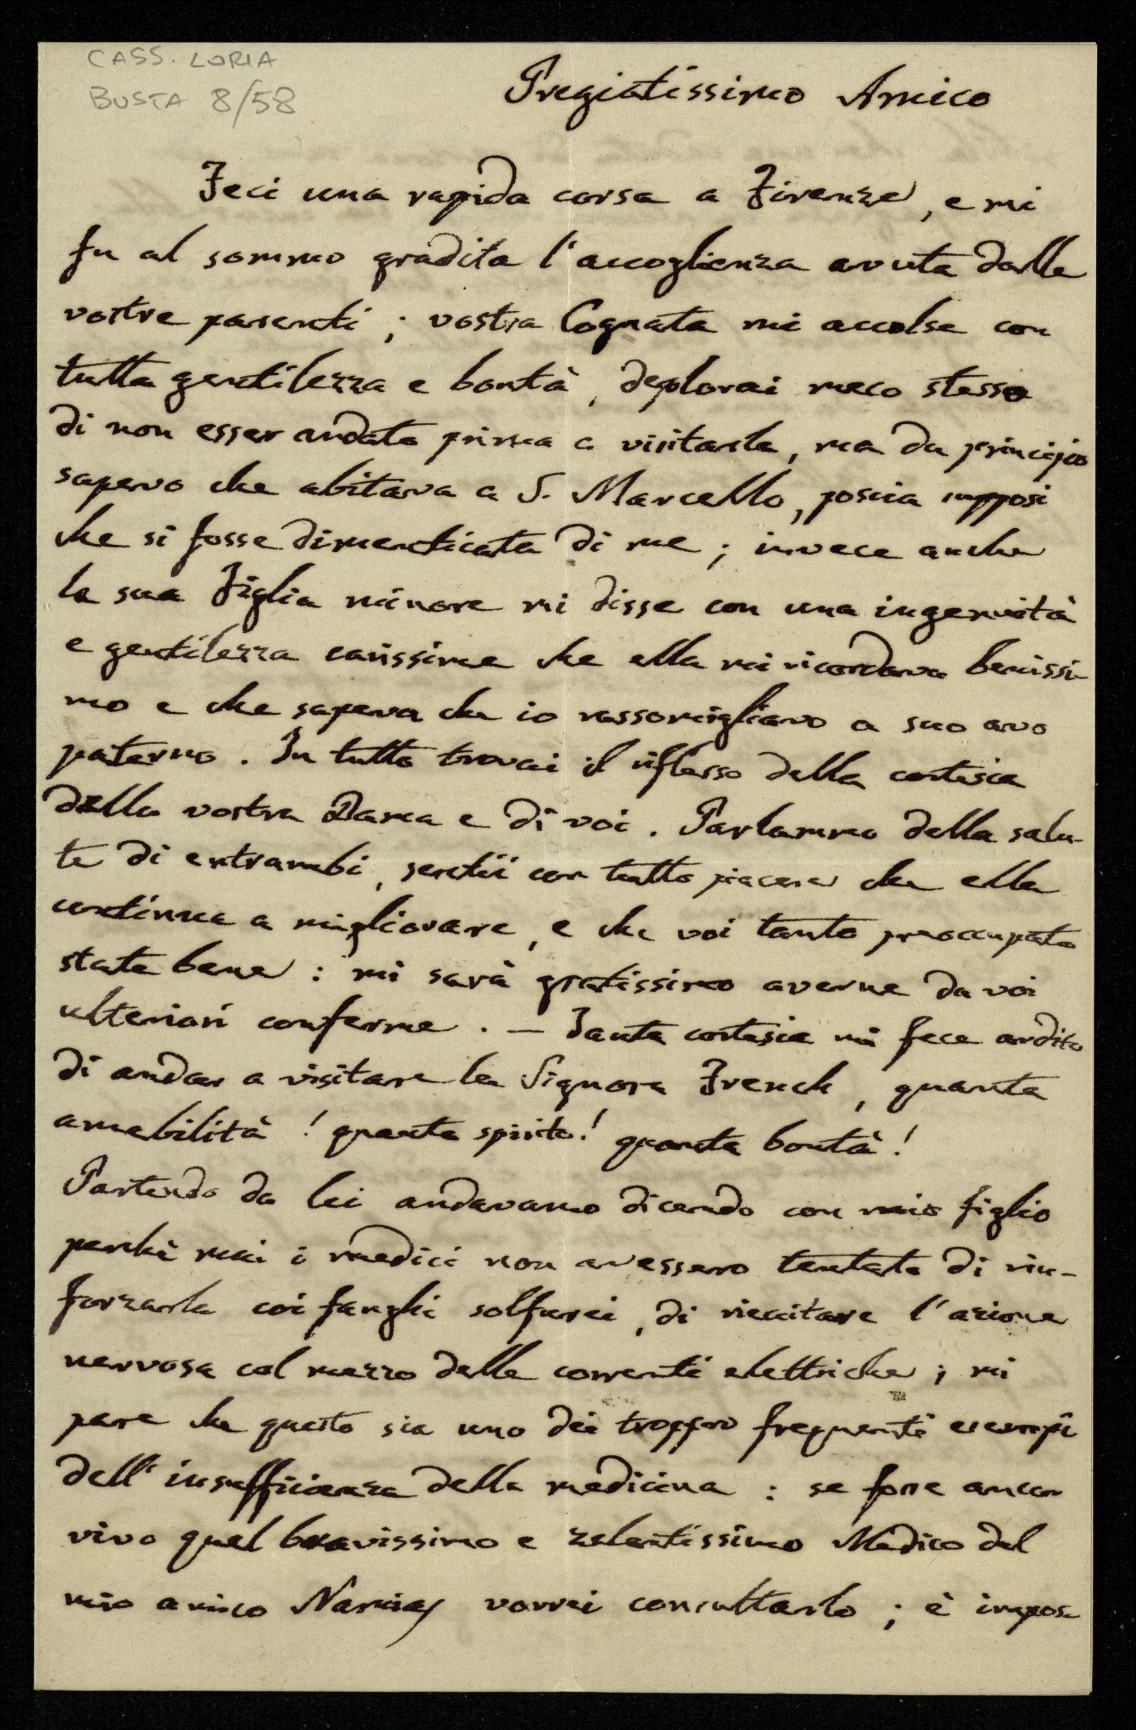 CASS. LORIA
BUSTA 8/58
Pregiatissimo Amico
Feci una rapida corsa a Firenze, e mi
fu al sommo gradita l'accoglienza avuta dalle
vostre parenti; vostra Cognata mi accolse con
tutta gentilezza e bontà, deplorai meco stesso
di non esser andato prima a visitarla, ma da principio
sapevo che abitava a S. Marcello, poscia supposi
che si fosse dimenticata di me; invece anche
la sua Figlia minore mi disse con una ingenuità
e gentilezza carissime che ella mi ricordava benissi-
mo e che sapeva che io rassomigliavo a suo avo
paterno. In tutto trovai il riflesso della cortesia
della vostra Dama e di voi. Parlammo della salu-
te di entrambi, sentii con tutto piacere che ella
continua a migliorare, e che voi tanto preoccupato
state bene: mi sarà gratissimo averne da voi
ulteriori conferme. — Tanta cortesia mi fece ardito
di andar a visitare la Signora French, quanta
amabilità! quanto spirito! quanta bontà!
Partendo da lei andavamo dicendo con mio figlio
perchè mai i medici non avessero tentato di rin-
forzarla coi fanghi solfurei, di rieccitare l'azione
nervosa col mezzo delle correnti elettriche; mi
pare che questo sia uno dei troppo frequenti esempi
dell'insufficienza della medicina: se fosse ancor
vivo quel bravissimo e zelantissimo Medico del
mio amico Namias vorrei consultarlo; è impos